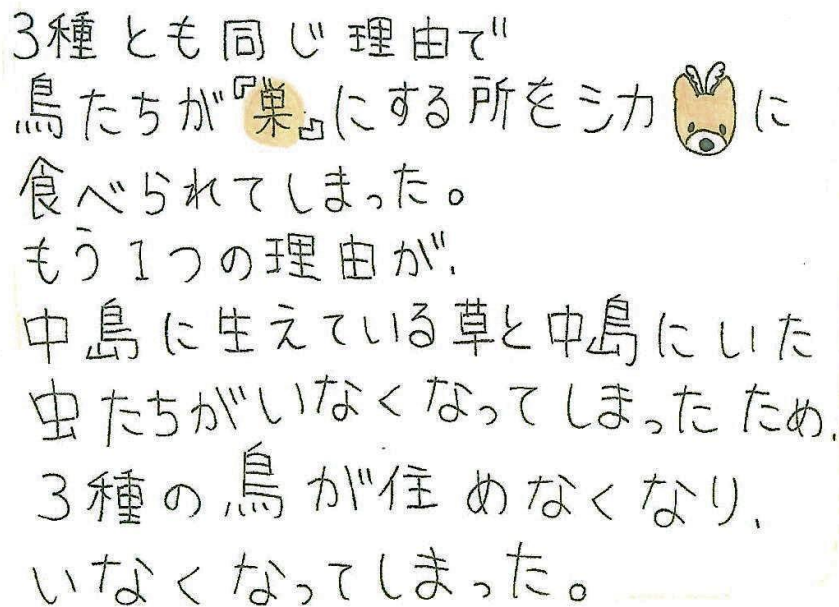 3種とも同じ理由で
鳥たちが『巣』にする所をシカに
食べられてしまった。
もう1つの理由が、
中島に生えている草と中島にいた
虫たちがいなくなってしまったため、
3種の鳥が住めなくなり、
いなくなってしまった。